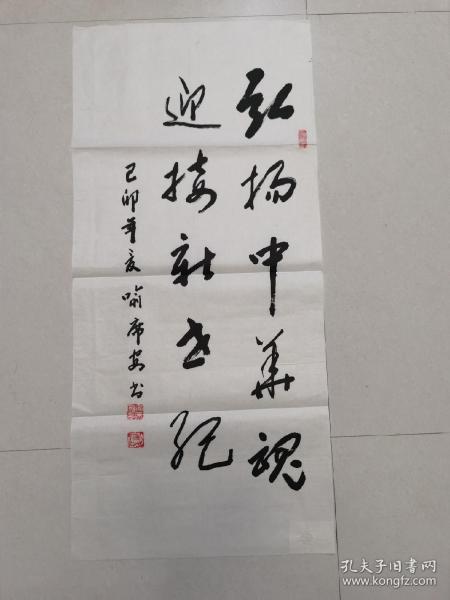 弘扬中华魂
迎接新世纪
己卯年夏 喻席安书
孔夫子旧书网
www.kongfz.com